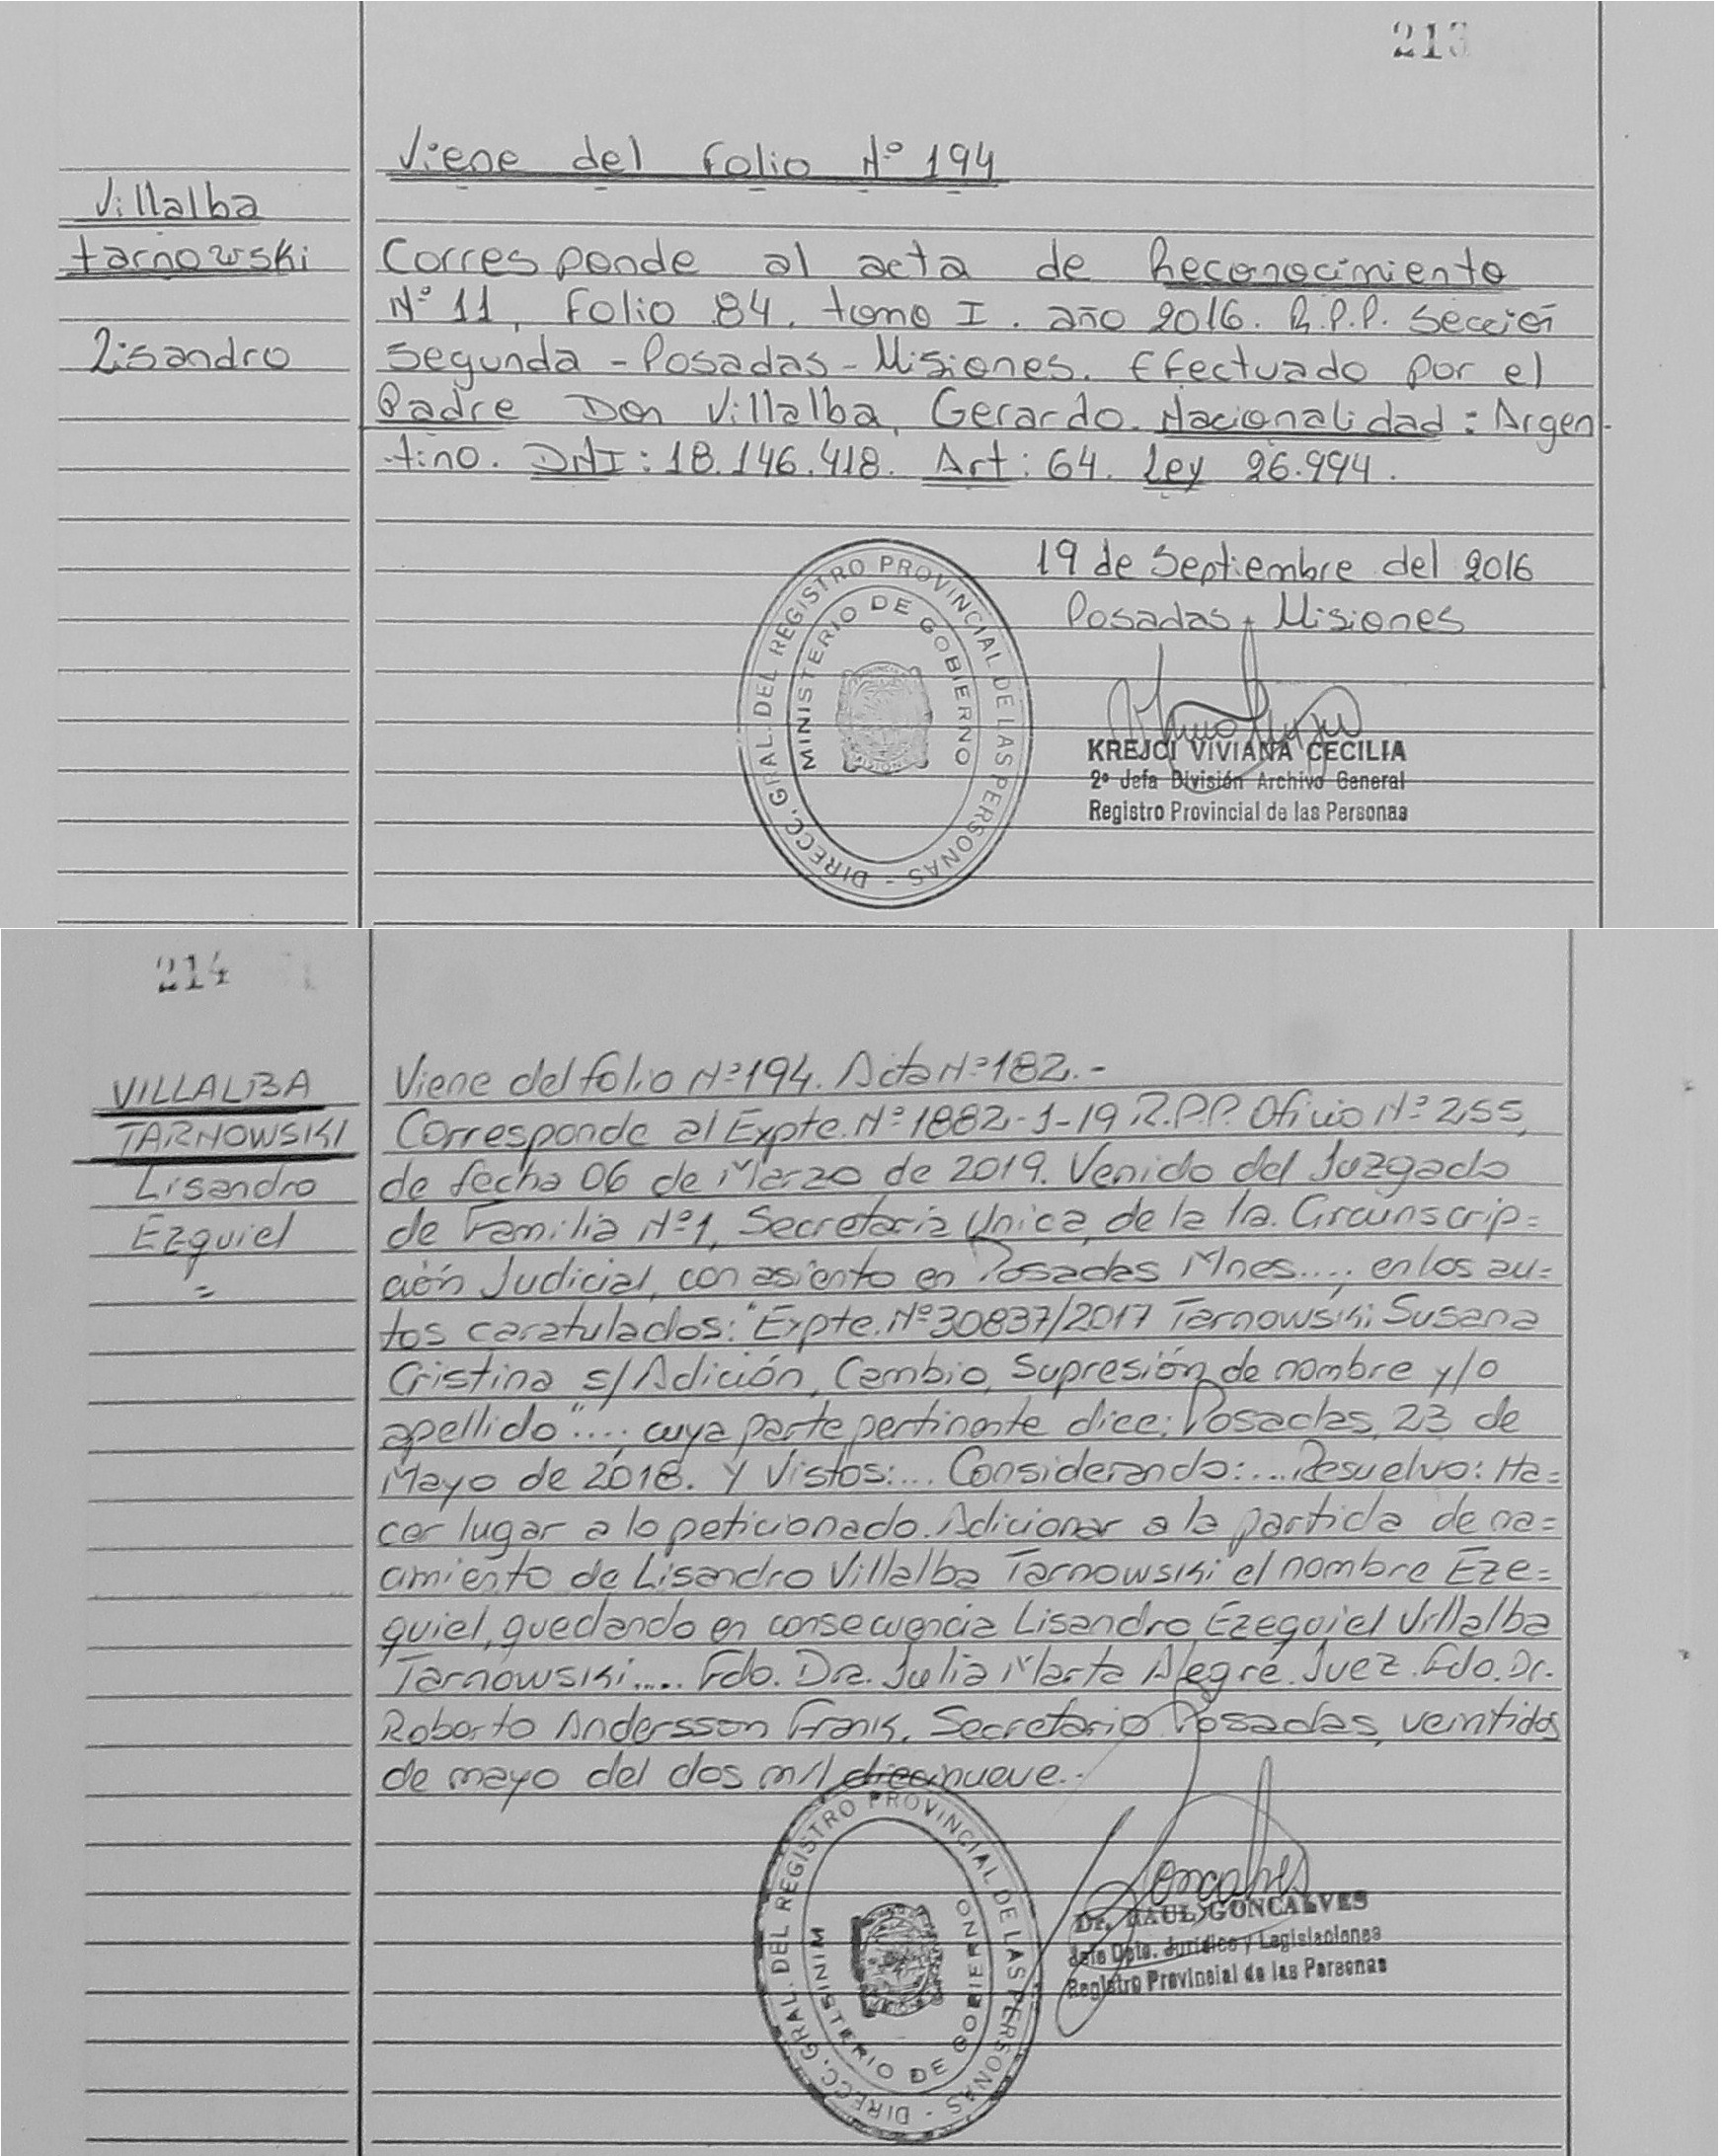 213
Viene del Folio Nº 194
Villalba
tarnowski
Lisandro
Corresponde al acta de Reconocimiento
Nº 11, Folio 84. tomo I. año 2016. R.P.P. Sección
Segunda - Posadas - Misiones. Efectuado por el
Padre Don Villalba, Gerardo. Nacionalidad: Argen-
-tino. DNI: 18.146.418. Art: 64. Ley 26.994.
19 de Septiembre del 2016
Posadas, Misiones
DIRECC. GRAL. DEL REGISTRO PROVINCIAL DE LAS PERSONAS -
MINISTERIO DE GOBIERNO
KREJCI VIVIANA CECILIA
2º Jefa División Archivo General
Registro Provincial de las Personas
214
VILLALBA
TARNOWSKI
Lisandro
Ezquiel
=
Viene del folio Nº 194. Acta Nº 182.-
Corresponde al Expte. Nº 1882-J-19 R.P.P. Oficio Nº 255,
de fecha 06 de Marzo de 2019. Venido del Juzgado
de Familia Nº 1, Secretaria Unica, de la 1ra. Circunscrip=
ción Judicial, con asiento en Posadas Mnes....; en los au=
tos caratulados: "Expte. Nº 30837/2017 Tarnowski Susana
Cristina s/ Adición, Cambio, Supresión de nombre y/o
apellido"....; cuya parte pertinente dice: Posadas, 23 de
Mayo de 2018. Y Vistos:... Considerando:... Resuelvo: Ha=
cer lugar a lo peticionado. Adicionar a la partida de na=
cimiento de Lisandro Villalba Tarnowski el nombre Eze=
quiel, quedando en consecuencia Lisandro Ezequiel Villalba
Tarnowski.... Fdo. Dra. Julia Marta Alegre. Juez. Fdo. Dr.
Roberto Andersson Frank. Secretario. Posadas, veintidos
de mayo del dos mil diecinueve.-
DIRECC. GRAL. DEL REGISTRO PROVINCIAL DE LAS PERSONAS -
MINISTERIO DE GOBIERNO
Goncalves
Dr. RAUL GONCALVES
Jefe Dpto. Jurídico y Legislaciones
Registro Provincial de las Personas